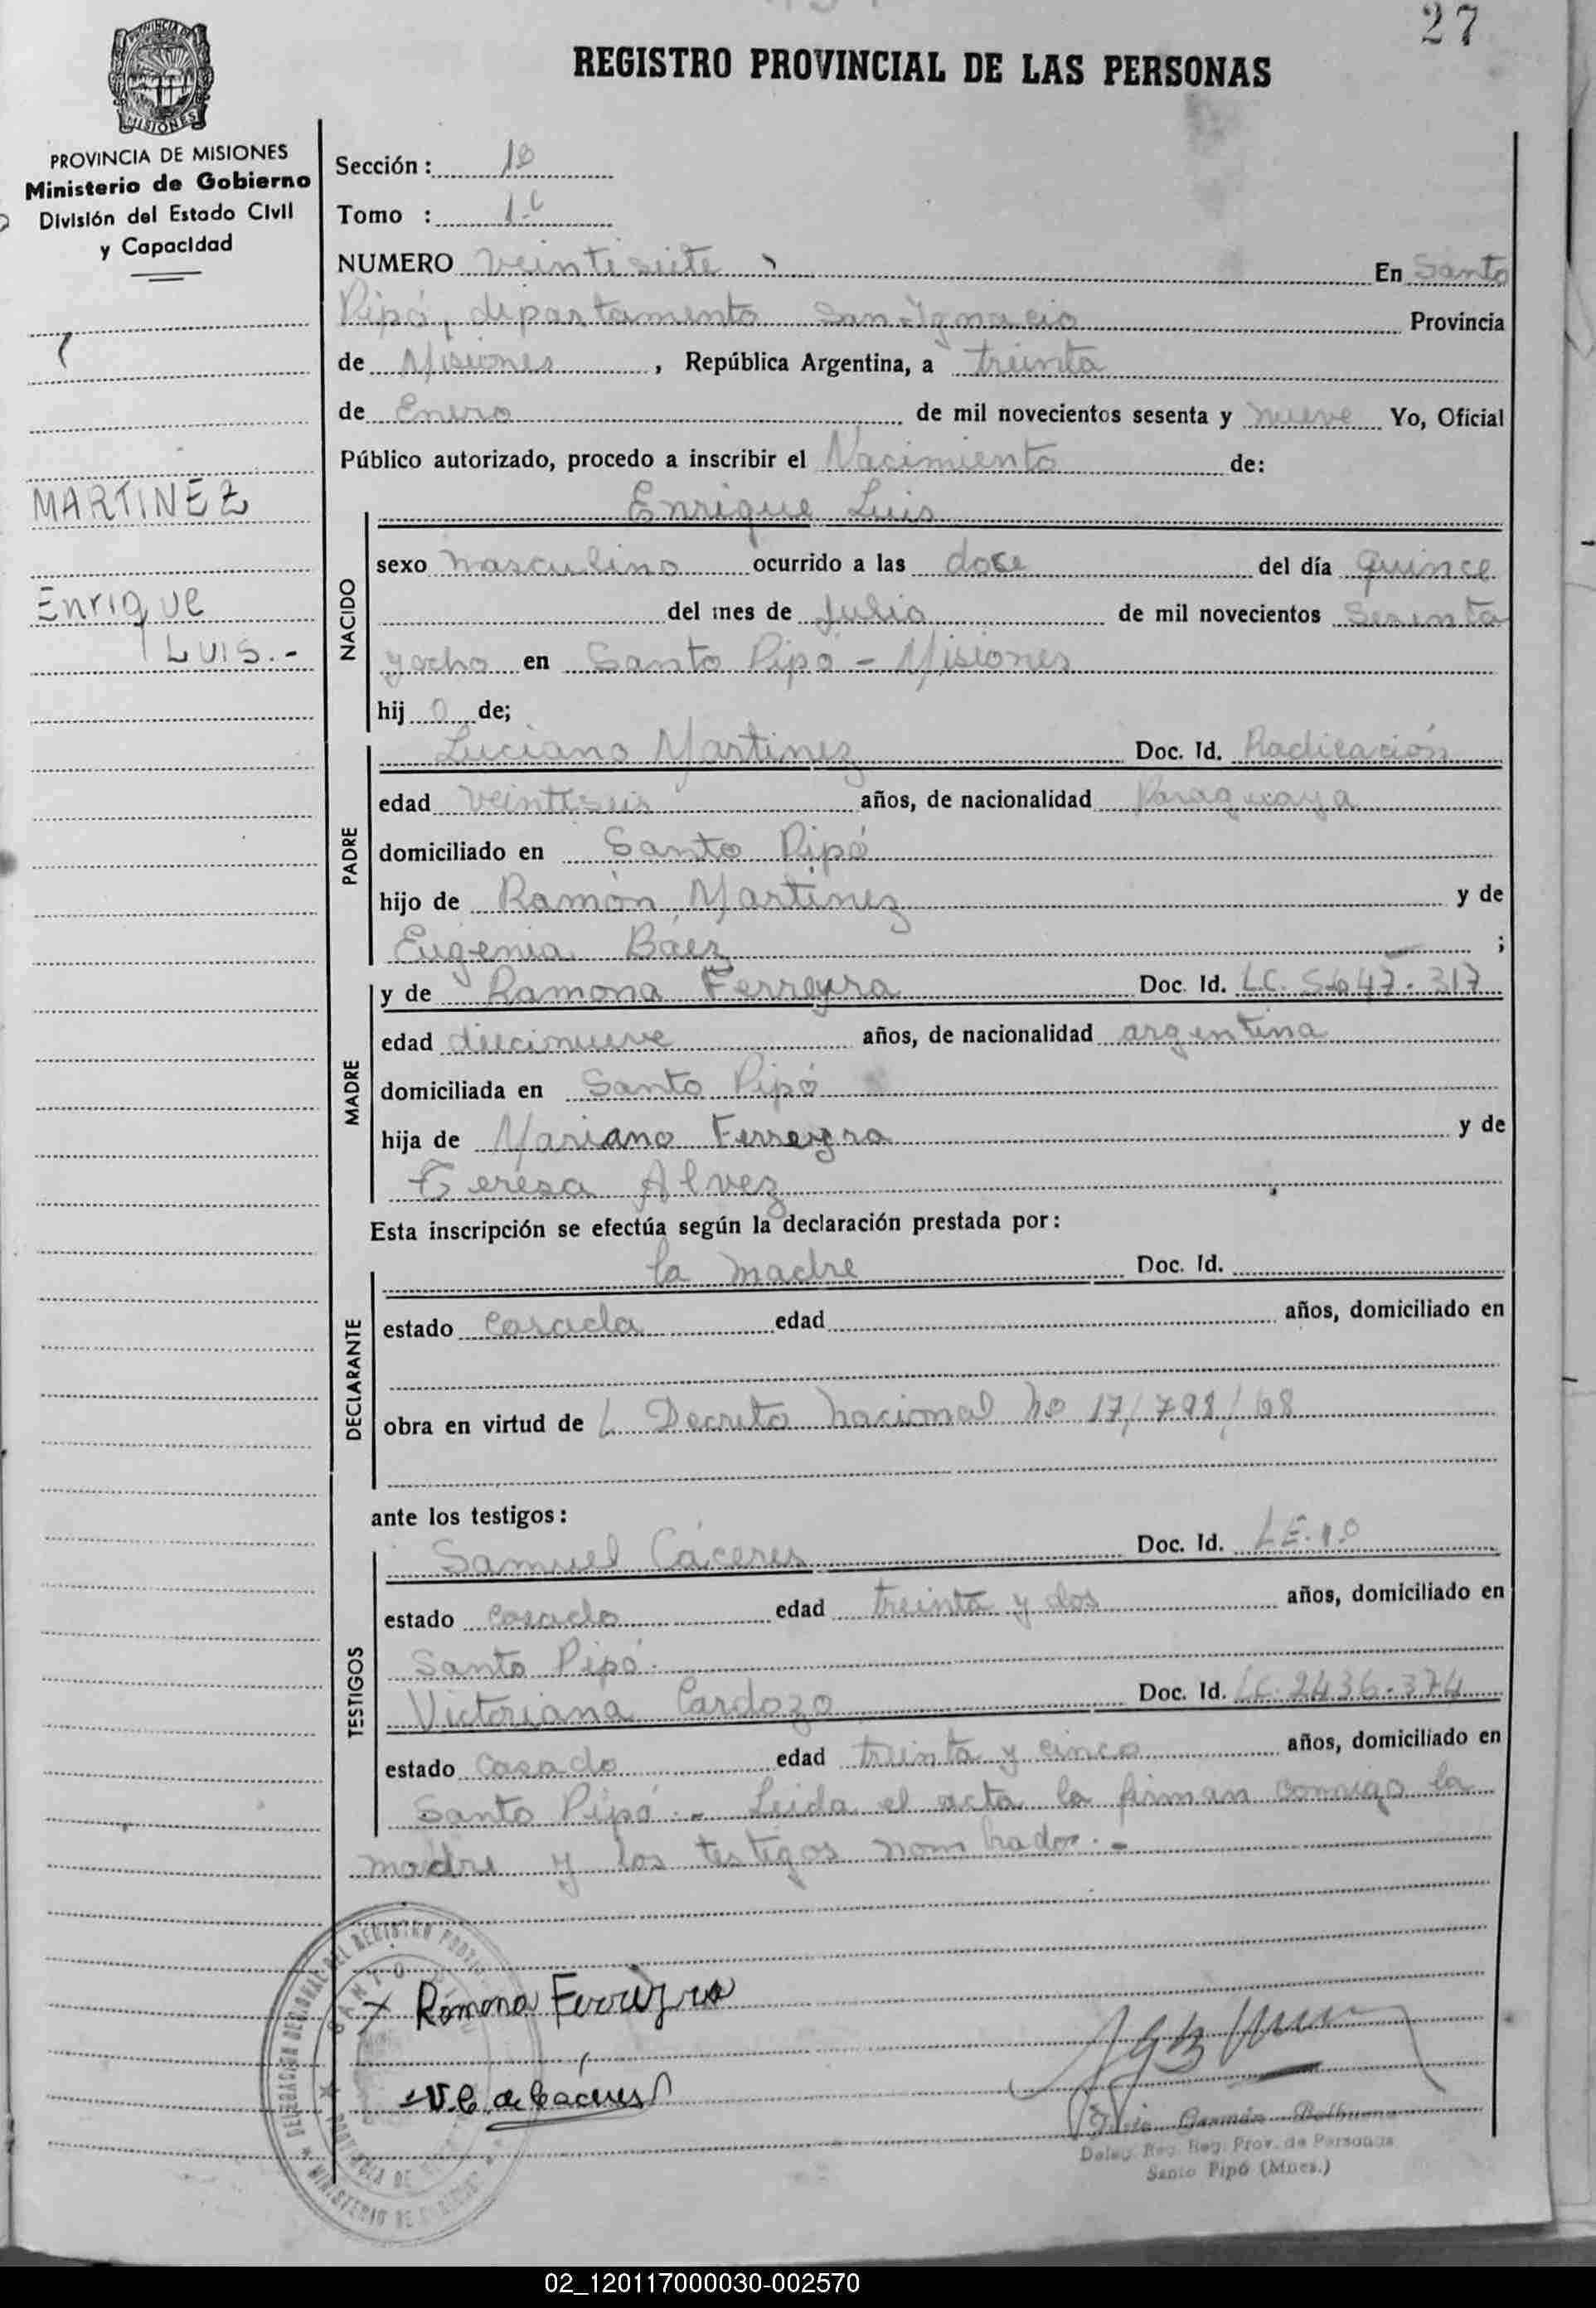 27
REGISTRO PROVINCIAL DE LAS PERSONAS
MISIONES
PROVINCIA DE MISIONES
Ministerio de Gobierno
División del Estado Civil
y Capacidad
MARTINEZ
Enrique
LUIS.-
Sección: 1º
Tomo : 1º
NUMERO veintisiete En Santo
Pipó, departamento San Ignacio Provincia
de Misiones, República Argentina, a treinta
de Enero de mil novecientos sesenta y nueve Yo, Oficial
Público autorizado, procedo a inscribir el Nacimiento de:
NACIDO
Enrique Luis
sexo masculino ocurrido a las doce del día quince
del mes de Julio de mil novecientos sesenta
y ocho en Santo Pipó - Misiones
hij o de;
PADRE
Luciano Martinez Doc. Id. Radicación
edad veintiseis años, de nacionalidad Paraguaya
domiciliado en Santo Pipó
hijo de Ramón Martinez y de
Eugenia Báez ;
MADRE
y de Ramona Ferreyra Doc. Id. L.C. 5.647.317
edad diecinueve años, de nacionalidad argentina
domiciliada en Santo Pipó
hija de Mariano Ferreyra y de
Teresa Alvez
Esta inscripción se efectúa según la declaración prestada por:
DECLARANTE
la madre Doc. Id.
estado casada edad años, domiciliado en
obra en virtud de Decreto Nacional Nº 17/798/68
ante los testigos:
TESTIGOS
Samuel Cáceres Doc. Id. L.E. Nº
estado casado edad treinta y dos años, domiciliado en
Santo Pipó.
Victoriana Cardozo Doc. Id. LC. 2436.374
estado casado edad treinta y cinco años, domiciliado en
Santo Pipó.- Leida el acta la firman conmigo la
madre y los testigos nombrados.-
Ramona Ferreyra
V.C. de Caceres
Deleg. Reg. Prov. de Personas
Santo Pipó (Mnes.)
02_120117000030-002570